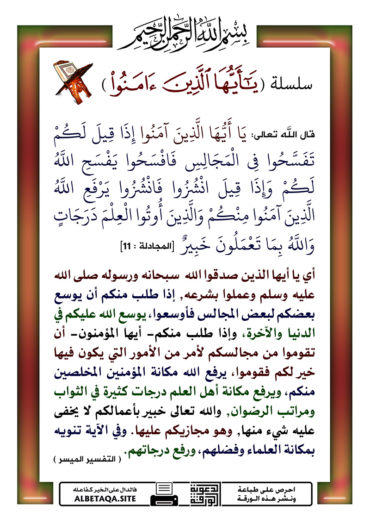 بسم الله الرحمن الرحيم
سلسلة ( يَـٰٓأَيُّهَا ٱلَّذِينَ ءَامَنُواْ )
قال اللَّه تعالى: يَا أَيُّهَا الَّذِينَ آمَنُوا إِذَا قِيلَ لَكُمْ
تَفَسَّحُوا فِي الْمَجَالِسِ فَافْسَحُوا يَفْسَحِ اللَّهُ
لَكُمْ وَإِذَا قِيلَ انْشُزُوا فَانْشُزُوا يَرْفَعِ اللَّهُ
الَّذِينَ آمَنُوا مِنْكُمْ وَالَّذِينَ أُوتُوا الْعِلْمَ دَرَجَاتٍ
وَاللَّهُ بِمَا تَعْمَلُونَ خَبِيرٌ [المجادلة : 11]
أي يا أيها الذين صدقوا الله سبحانه ورسوله صلى الله
عليه وسلم وعملوا بشرعه, إذا طلب منكم أن يوسع
بعضكم لبعض المجالس فأوسعوا، يوسع الله عليكم في
الدنيا والآخرة، وإذا طلب منكم- أيها المؤمنون- أن
تقوموا من مجالسكم لأمر من الأمور التي يكون فيها
خير لكم فقوموا، يرفع الله مكانة المؤمنين المخلصين
منكم، ويرفع مكانة أهل العلم درجات كثيرة في الثواب
ومراتب الرضوان, والله تعالى خبير بأعمالكم لا يخفى
عليه شيء منها, وهو مجازيكم عليها. وفي الآية تنويه
بمكانة العلماء وفضلهم، ورفع درجاتهم. ( التفسير الميسر )
احرص على طباعة
ونشر هذه الورقة
الورقة الدعوية
فالدال على الخير كفاعله
ALBETAQA.SITE